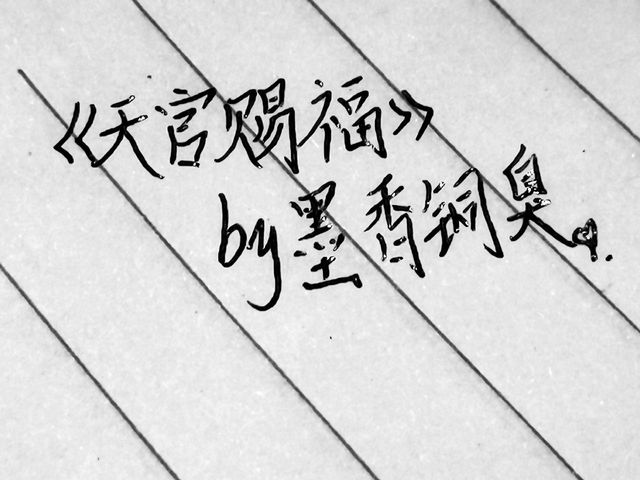 《天官赐福》
by墨香铜臭